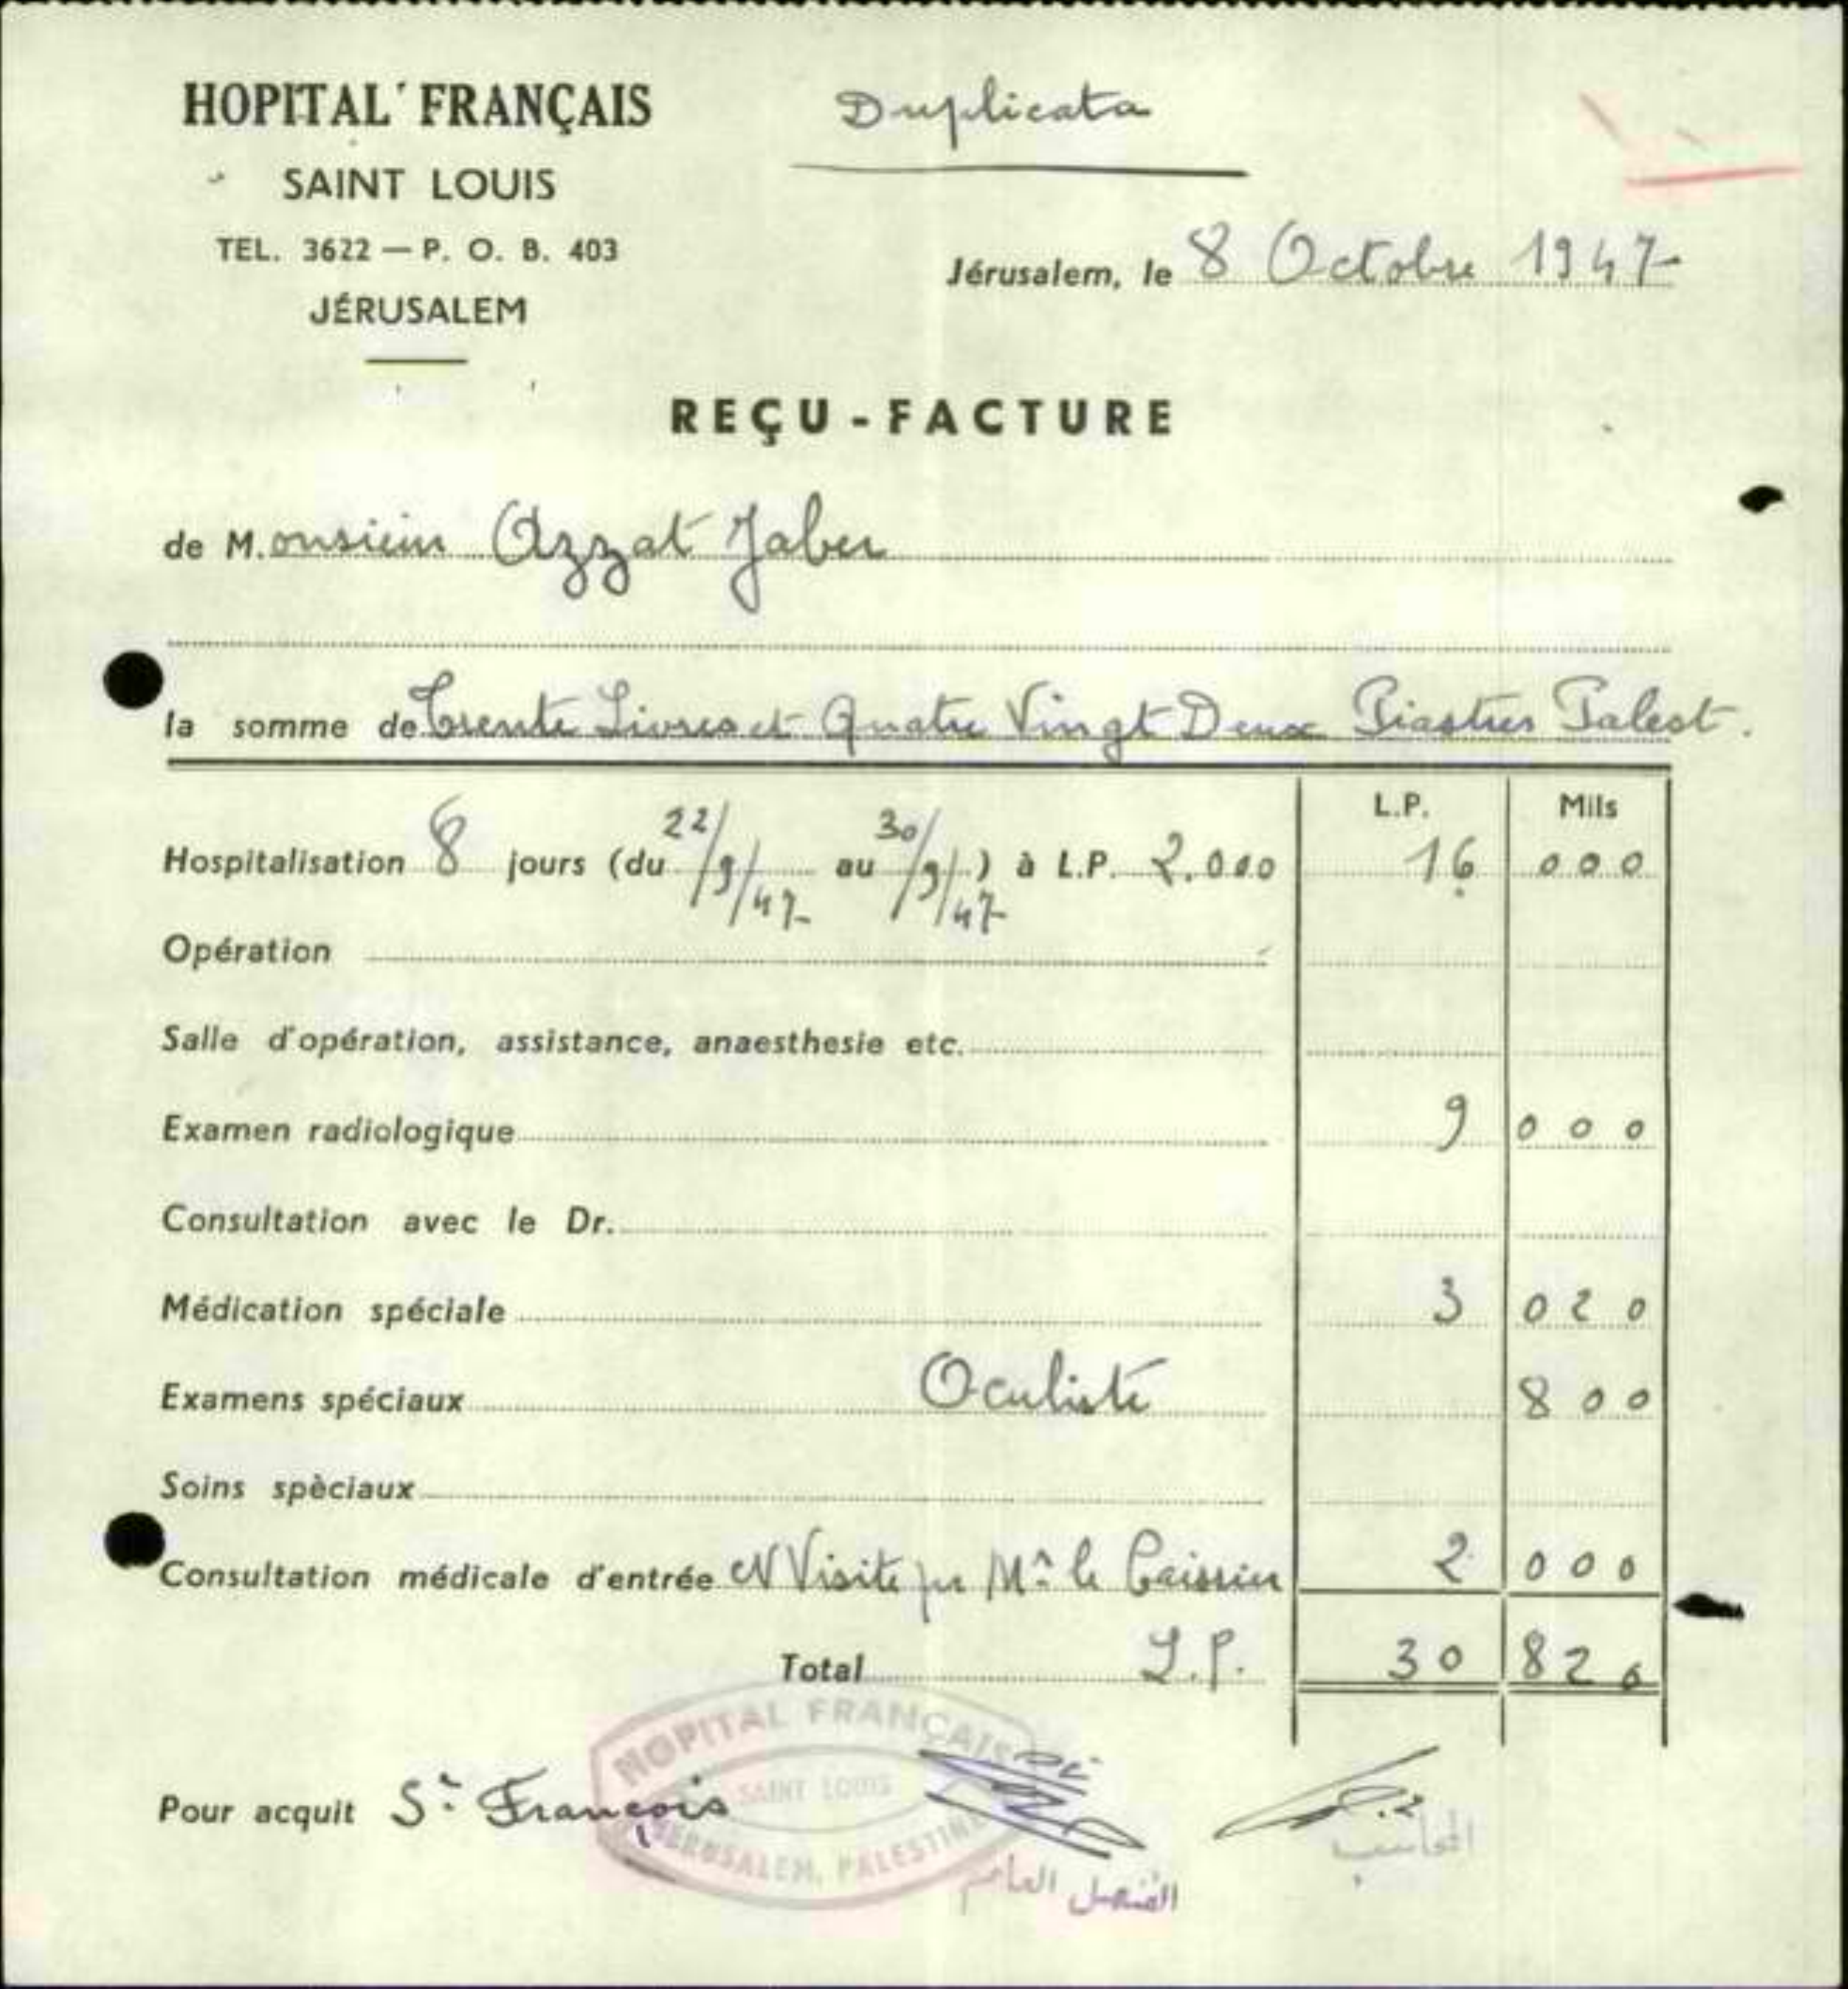 HOPITAL FRANÇAIS
SAINT LOUIS
TEL. 3622 — P. O. B. 403
JÉRUSALEM
Duplicata
Jérusalem, le 8 Octobre 1947
REÇU - FACTURE
de M.onsieur Azzat Jaber
la somme de Trente Livres et Quatre Vingt Deux Piastres Palest.
L.P. Mils
Hospitalisation 8 jours (du 22/9/47 au 30/9/47) à L.P. 2.000 16 000
Opération
Salle d'opération, assistance, anaesthesie etc.
Examen radiologique 9 000
Consultation avec le Dr.
Médication spéciale 3 020
Examens spéciaux Oculiste 800
Soins spèciaux
Consultation médicale d'entrée Visite le 2 000
Total L.P. 30 820
Pour acquit Sr François
HOPITAL FRANÇAIS
SAINT LOUIS
JERUSALEM, PALESTINE
القنصل العام
المحاسب